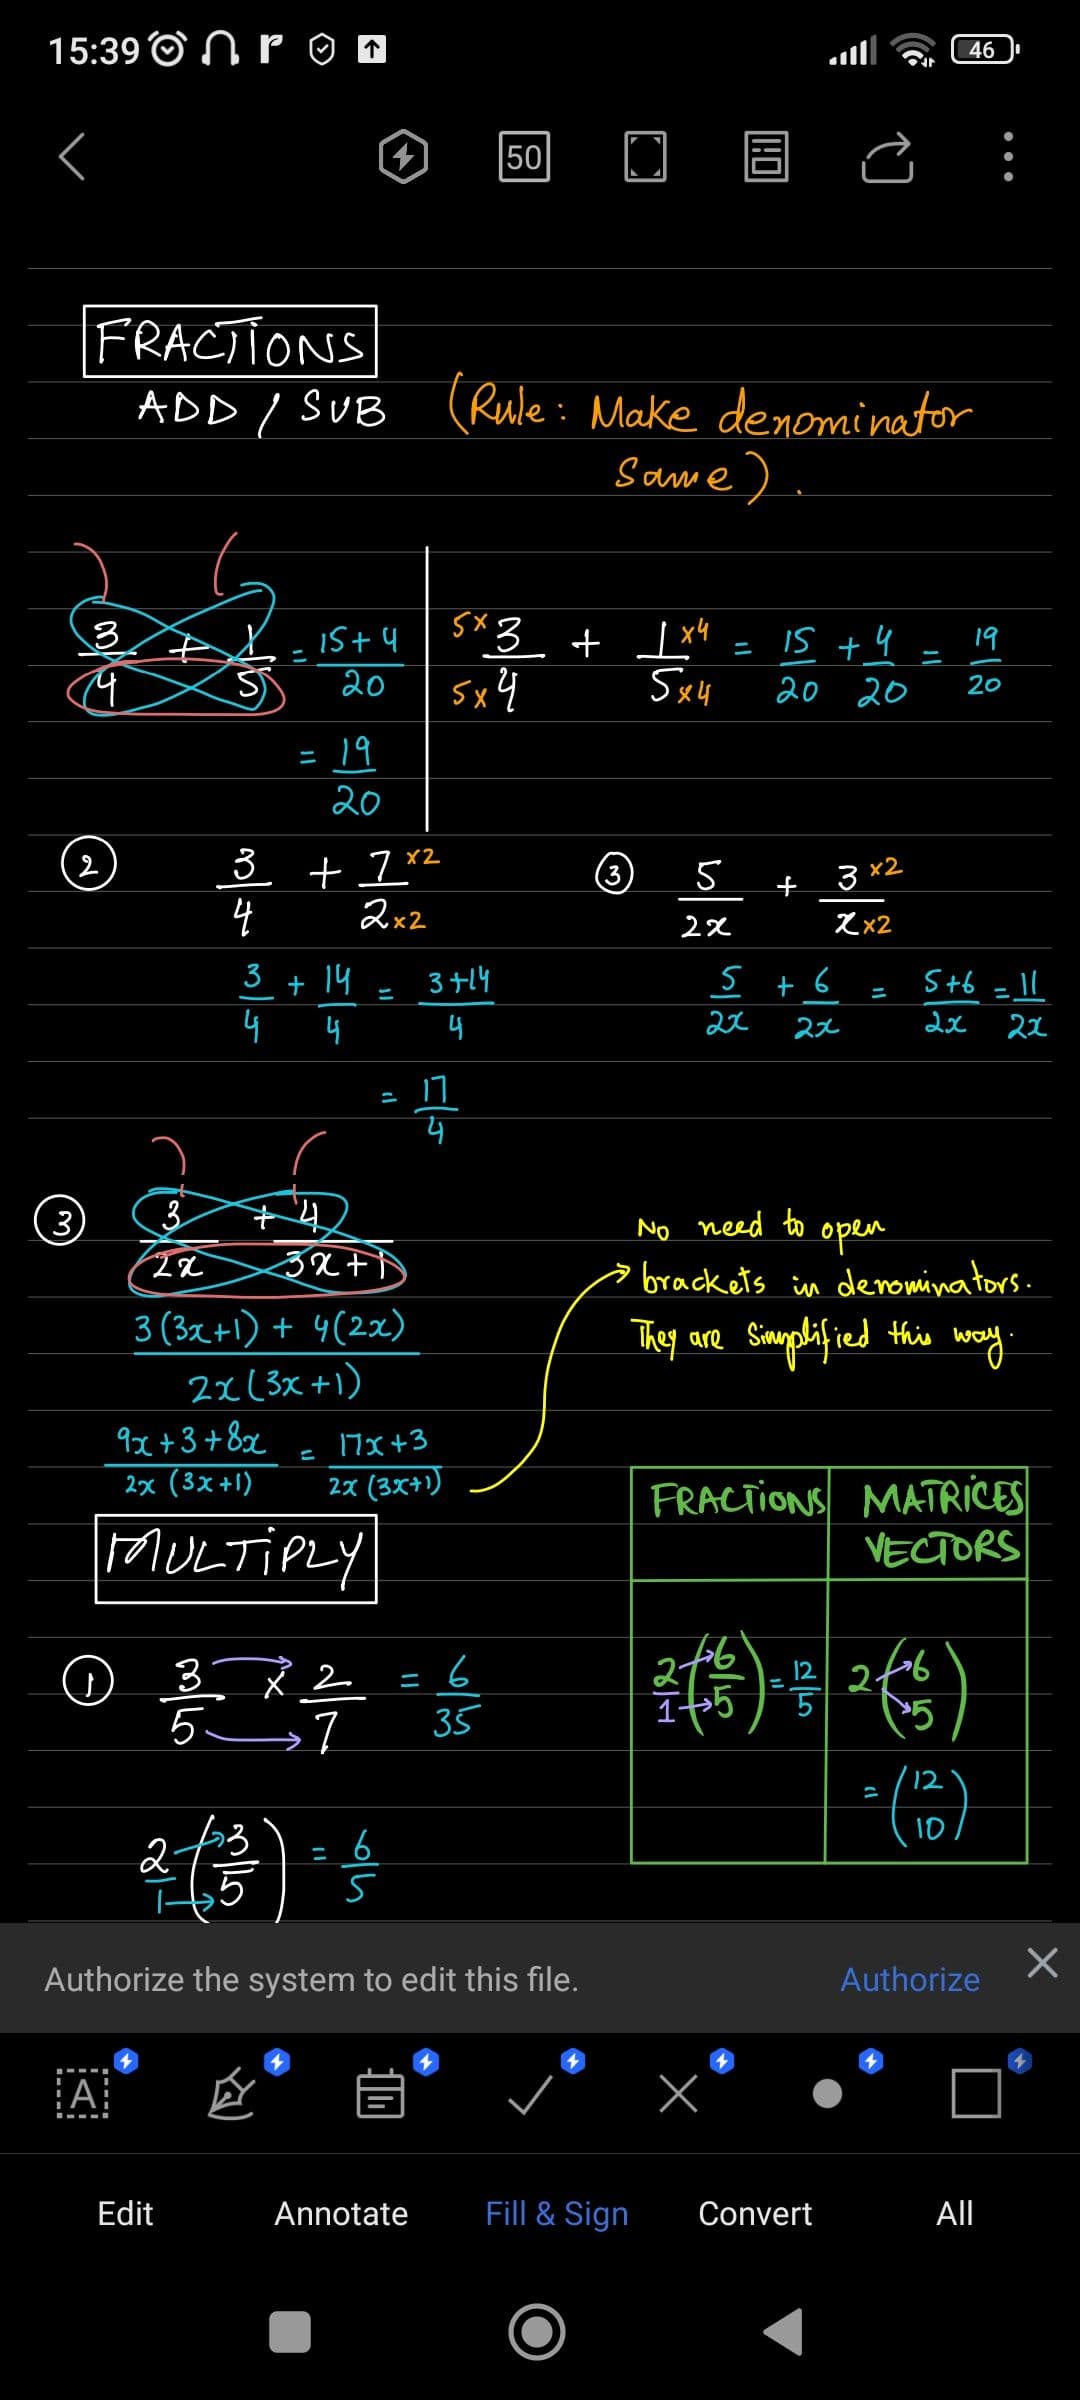 15:39
46
50
FRACTIONS
ADD / SUB (Rule: Make denominator
same).
3/4 + 1/5 = (15+4)/20
= 19/20
5×3/5×4 + 1×4/5×4 = 15/20 + 4/20 = 19/20
② 3/4 + 7×2/2×2
3/4 + 14/4 = (3+14)/4
= 17/4
③ 5/2x + 3×2/x×2
5/2x + 6/2x = (5+6)/2x = 11/2x
③ 3/2x + 4/(3x+1)
3(3x+1) + 4(2x)
2x(3x+1)
9x+3+8x / 2x(3x+1) = 17x+3 / 2x(3x+1)
No need to open
brackets in denominators.
They are simplified this way.
MULTIPLY
① 3/5 × 2/7 = 6/35
2/1 (3/5) = 6/5
FRACTIONS MATRICES
VECTORS
2/1 (6/5) = 12/5
2 (6 5)
= (12 10)
Authorize the system to edit this file. Authorize
A
Edit Annotate Fill & Sign Convert All